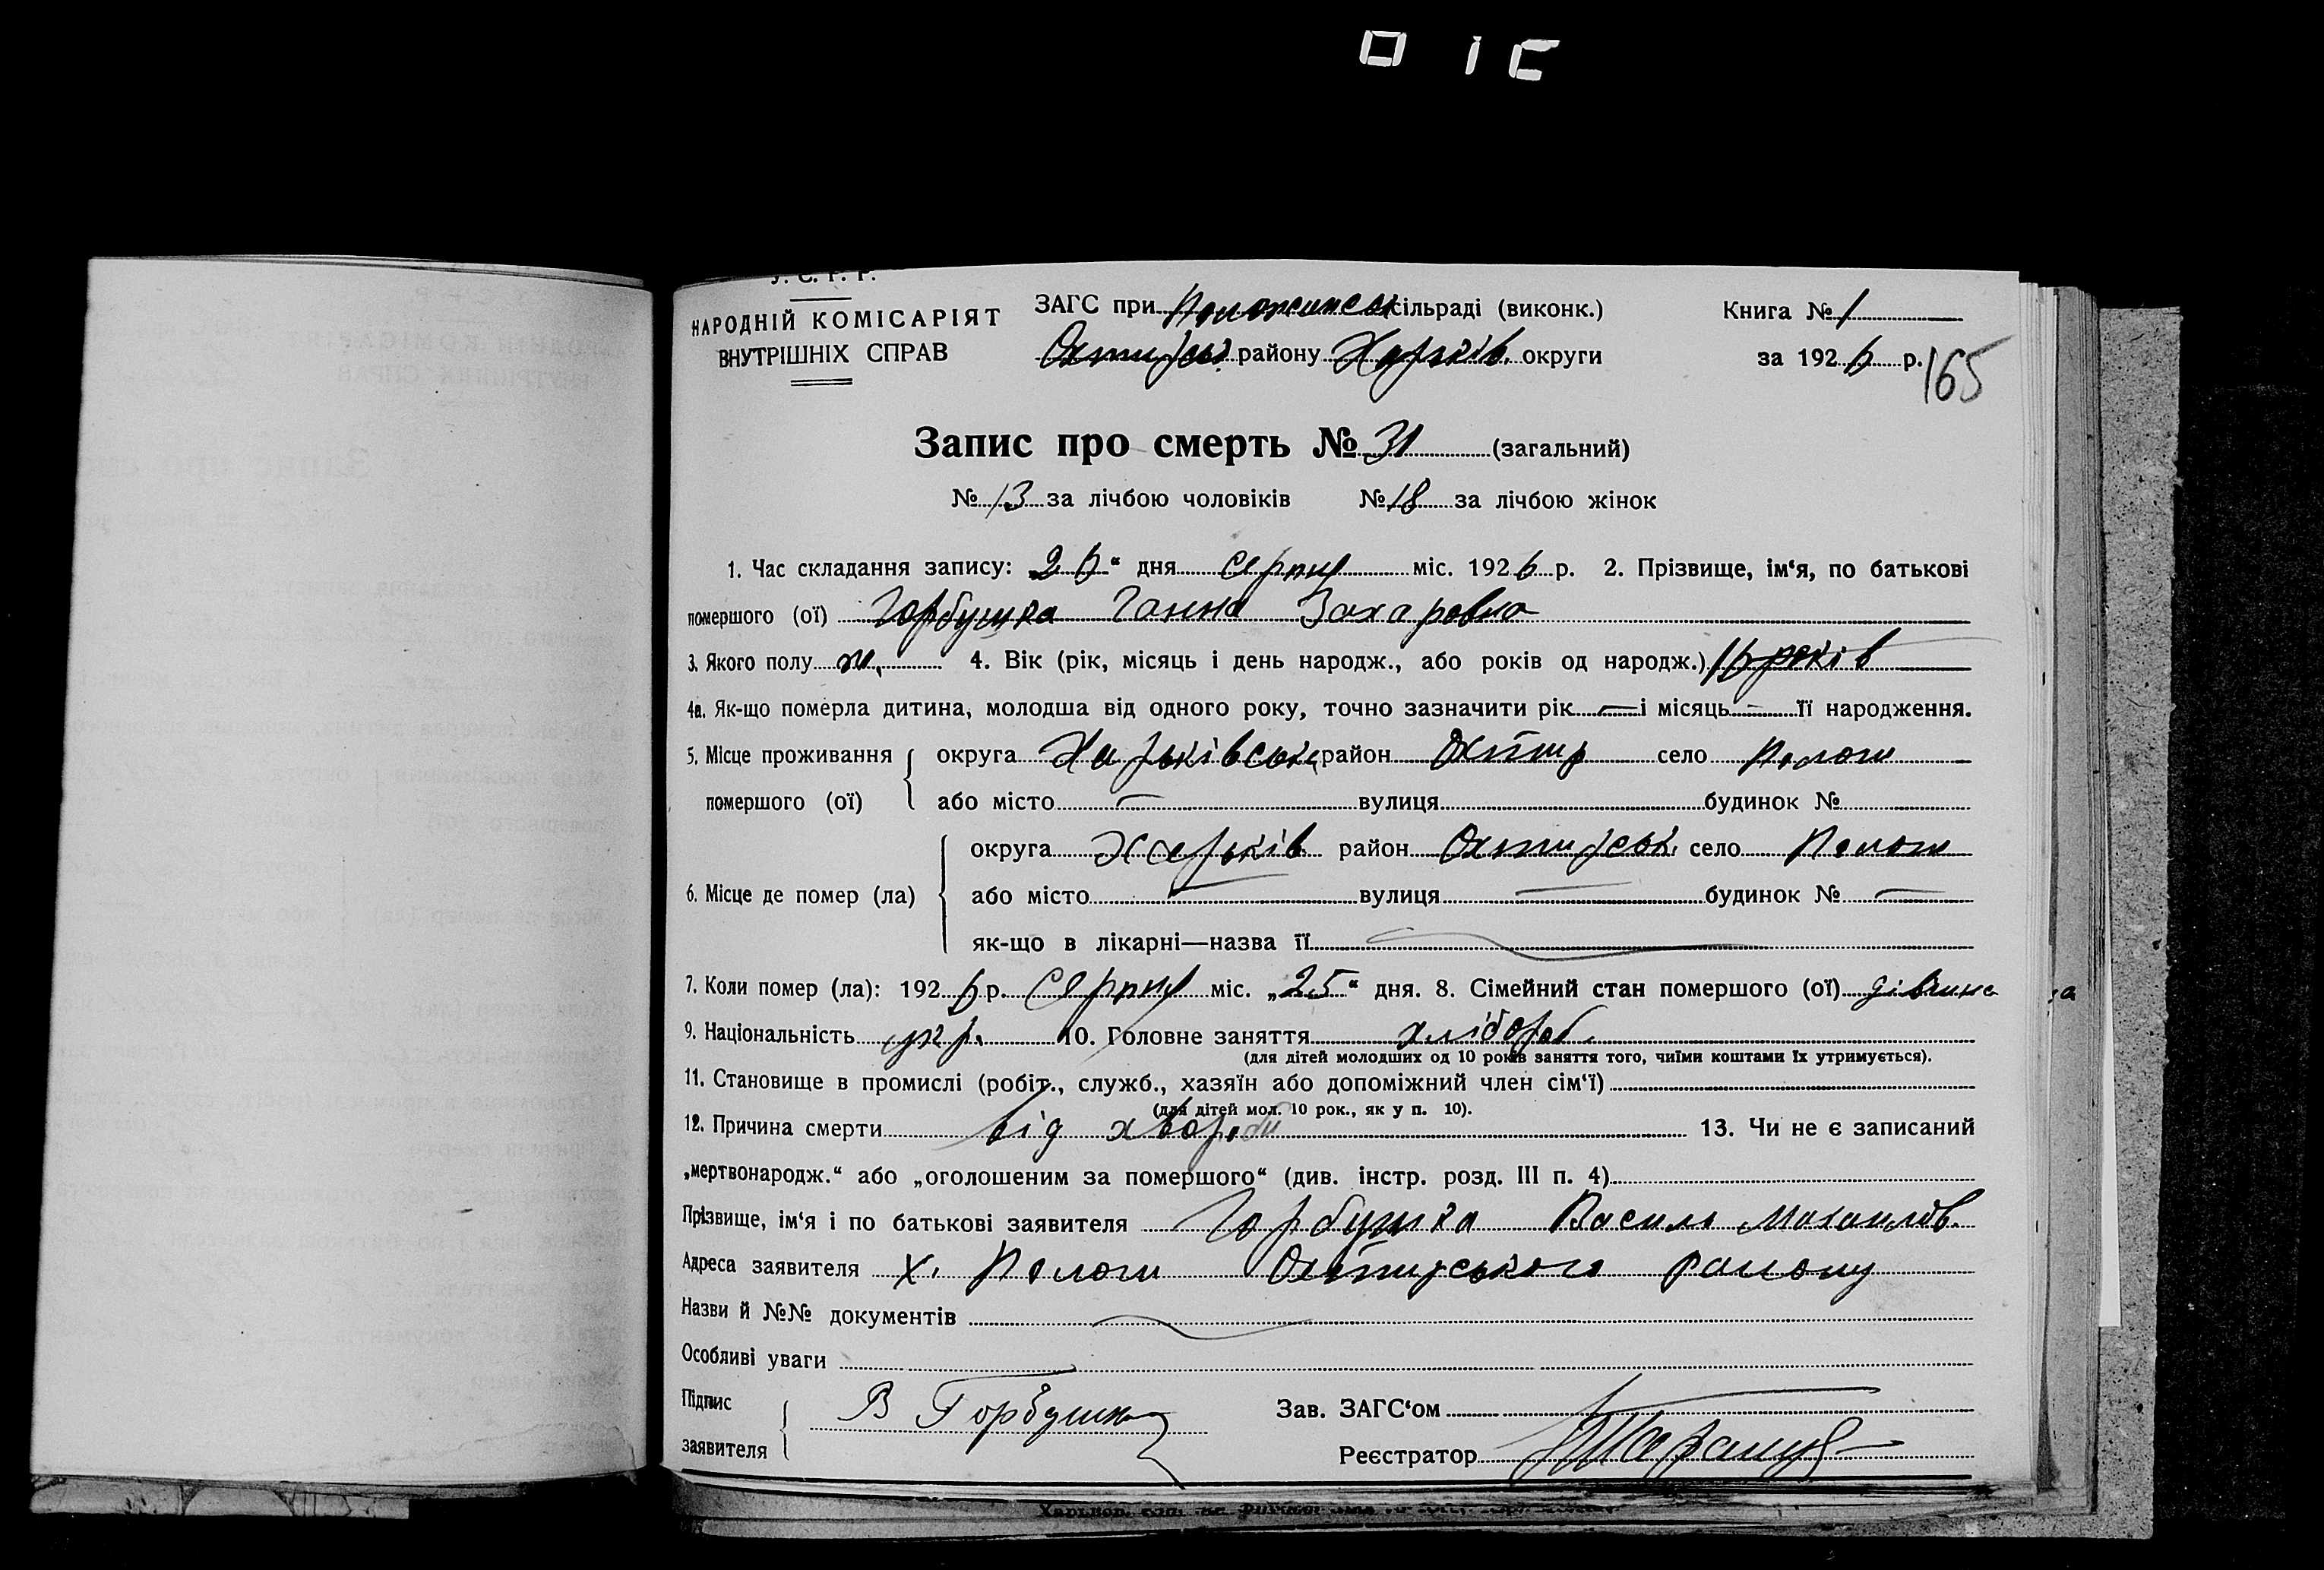 У. С. Р. Р.
НАРОДНІЙ КОМІСАРІЯТ
ВНУТРІШНІХ СПРАВ
ЗАГС при сільраді (виконк.)
Охтирськ. району Харків. округи
Книга № 1
за 1926 р.
165
Запис про смерть № 31 (загальний)
№ 13 за лічбою чоловіків № 18 за лічбою жінок
1. Час складання запису: 26“ дня серпня міс. 1926 р. 2. Прізвище, ім‘я, по батькові
помершого (ої) Горбушка Ганна Захаровна
3. Якого полу ж. 4. Вік (рік, місяць і день народж., або років од народж.) 16 років
4а. Як-що померла дитина, молодша від одного року, точно зазначити рік — і місяць — її народження.
5. Місце проживання помершого (ої) округа Харьківська район Охтир село Пологи
або місто — вулиця будинок №
6. Місце де помер (ла) округа Харьків район Охтирськ. село Пологи
або місто — вулиця — будинок № —
як-що в лікарні—назва її
7. Коли помер (ла): 1926 р. Серпня міс. „25“ дня. 8. Сімейний стан помершого (ої) дівчина
9. Національність укр. 10. Головне заняття хлібороб.
(для дітей молодших од 10 років заняття того, чиїми коштами їх утримується).
11. Становище в промислі (робіт., служб., хазяїн або допоміжний член сім‘ї)
(для дітей мол. 10 рок., як у п. 10).
12. Причина смерти від хвороби 13. Чи не є записаний
„мертвонародж.“ або „оголошеним за помершого“ (див. інстр. розд. III п. 4)
Прізвище, ім‘я і по батькові заявителя Горбушка Василь
Адреса заявителя х. Пологи Охтирського району
Назви й №№ документів
Особливі уваги
Підпис заявителя В Горбушка
Зав. ЗАГС‘ом
Реєстратор